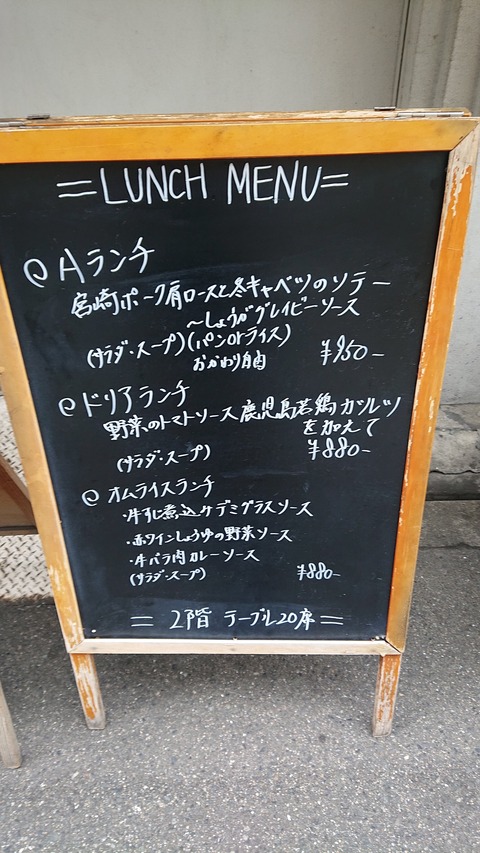 =LUNCH MENU=
@Aランチ
宮崎ポーク肩ロースと冬キャベツのソテー
〜しょうがグレイビーソース
(サラダ・スープ)(パンorライス)
おかわり自由
¥950-
@ドリアランチ
野菜のトマトソース鹿児島若鶏ガルツ
を加えて
(サラダ・スープ)
¥880-
@オムライスランチ
・牛すじ煮込みデミグラスソース
・赤ワインしょうゆの野菜ソース
・牛バラ肉カレーソース
(サラダ・スープ)
¥880-
=2階 テーブル20席=